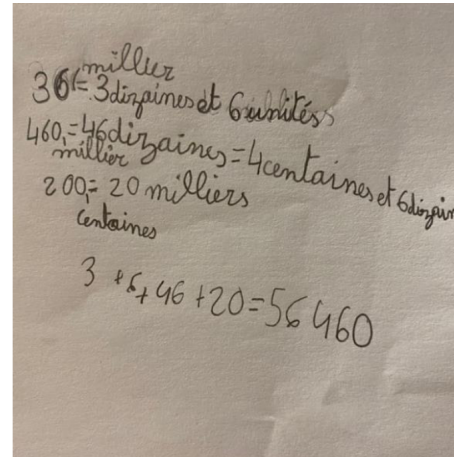 millier
36 = 3 dizaines et 6 unités
460, = 46 dizaines = 4 centaines et 6 dizain
millier
200, = 20 milliers
centaines
3 + 6 + 46 + 20 = 56 460